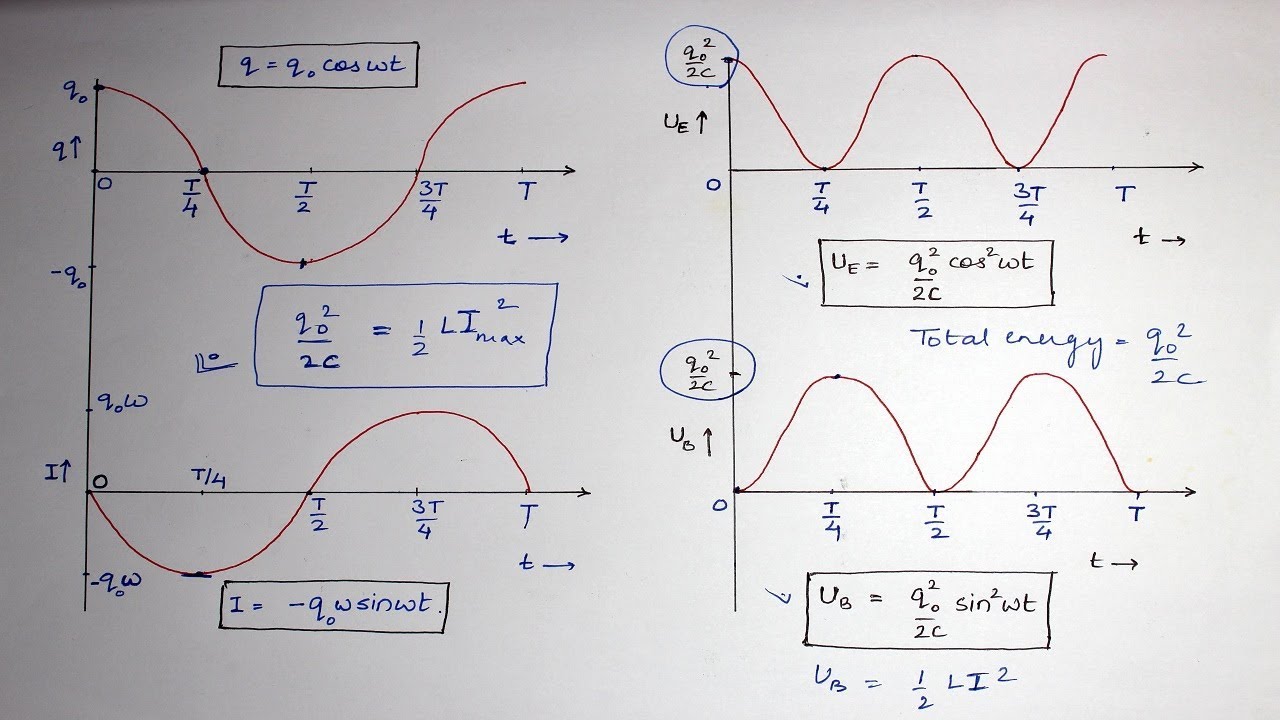 q = q₀ cos ωt
q₀
q↑
0
T/4
T/2
3T/4
T
t →
-q₀
q₀²/2C = 1/2 L I²max
q₀ω
I↑
0
T/4
T/2
3T/4
T
t →
-q₀ω
I = -q₀ω sin ωt.
q₀²/2C
U_E ↑
0
T/4
T/2
3T/4
T
t →
U_E = q₀²/2C cos²ωt
Total energy = q₀²/2C
q₀²/2C
U_B ↑
0
T/4
T/2
3T/4
T
t →
U_B = q₀²/2C sin²ωt
U_B = 1/2 L I²